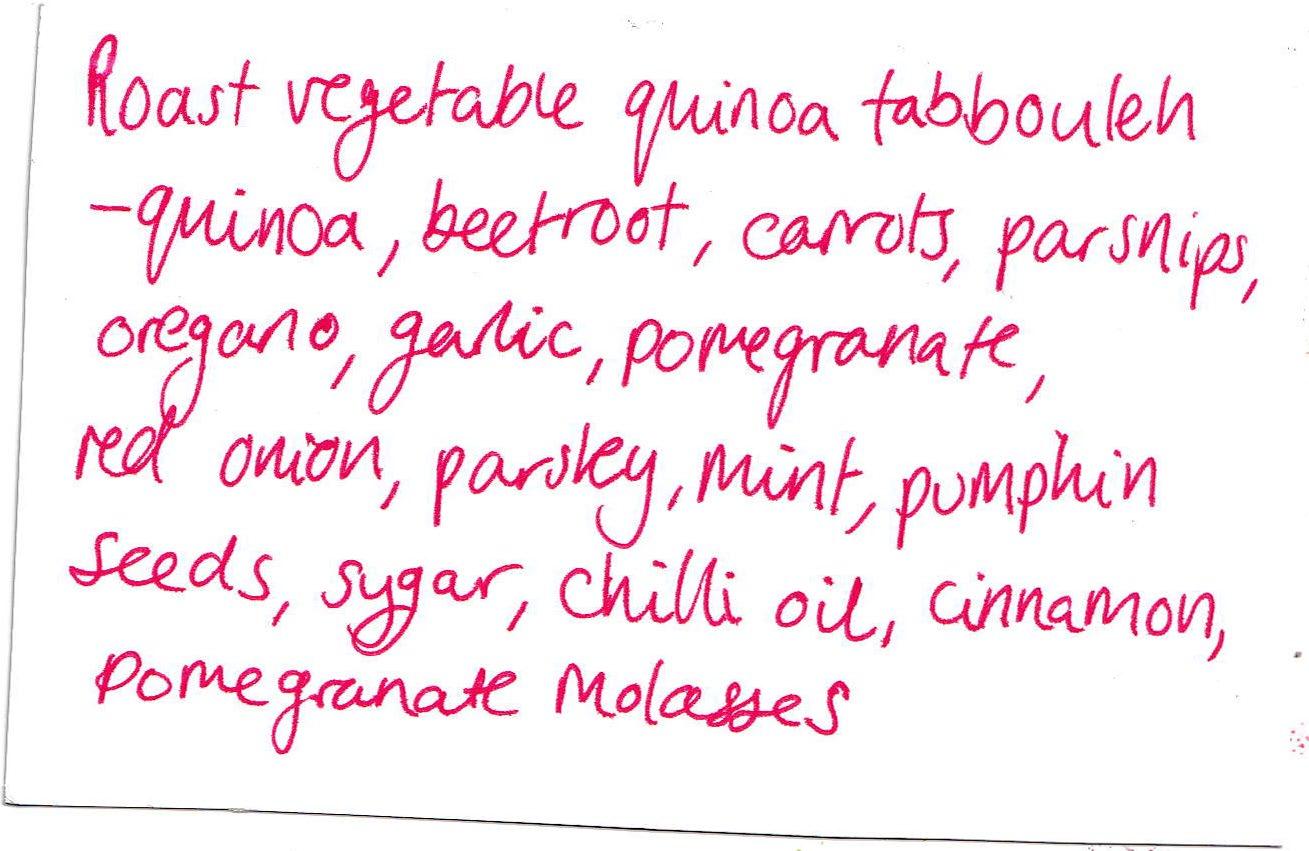 Roast vegetable quinoa tabbouleh
-quinoa, beetroot, carrots, parsnips,
oregano, garlic, pomegranate,
red onion, parsley, mint, pumpkin
seeds, sygar, chilli oil, cinnamon,
pomegranate molasses